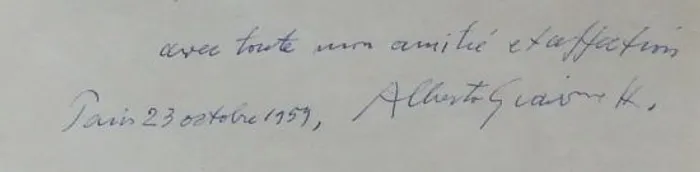 avec toute mon amitié et affection
Paris 23 octobre 1959, Alberto Giacometti.